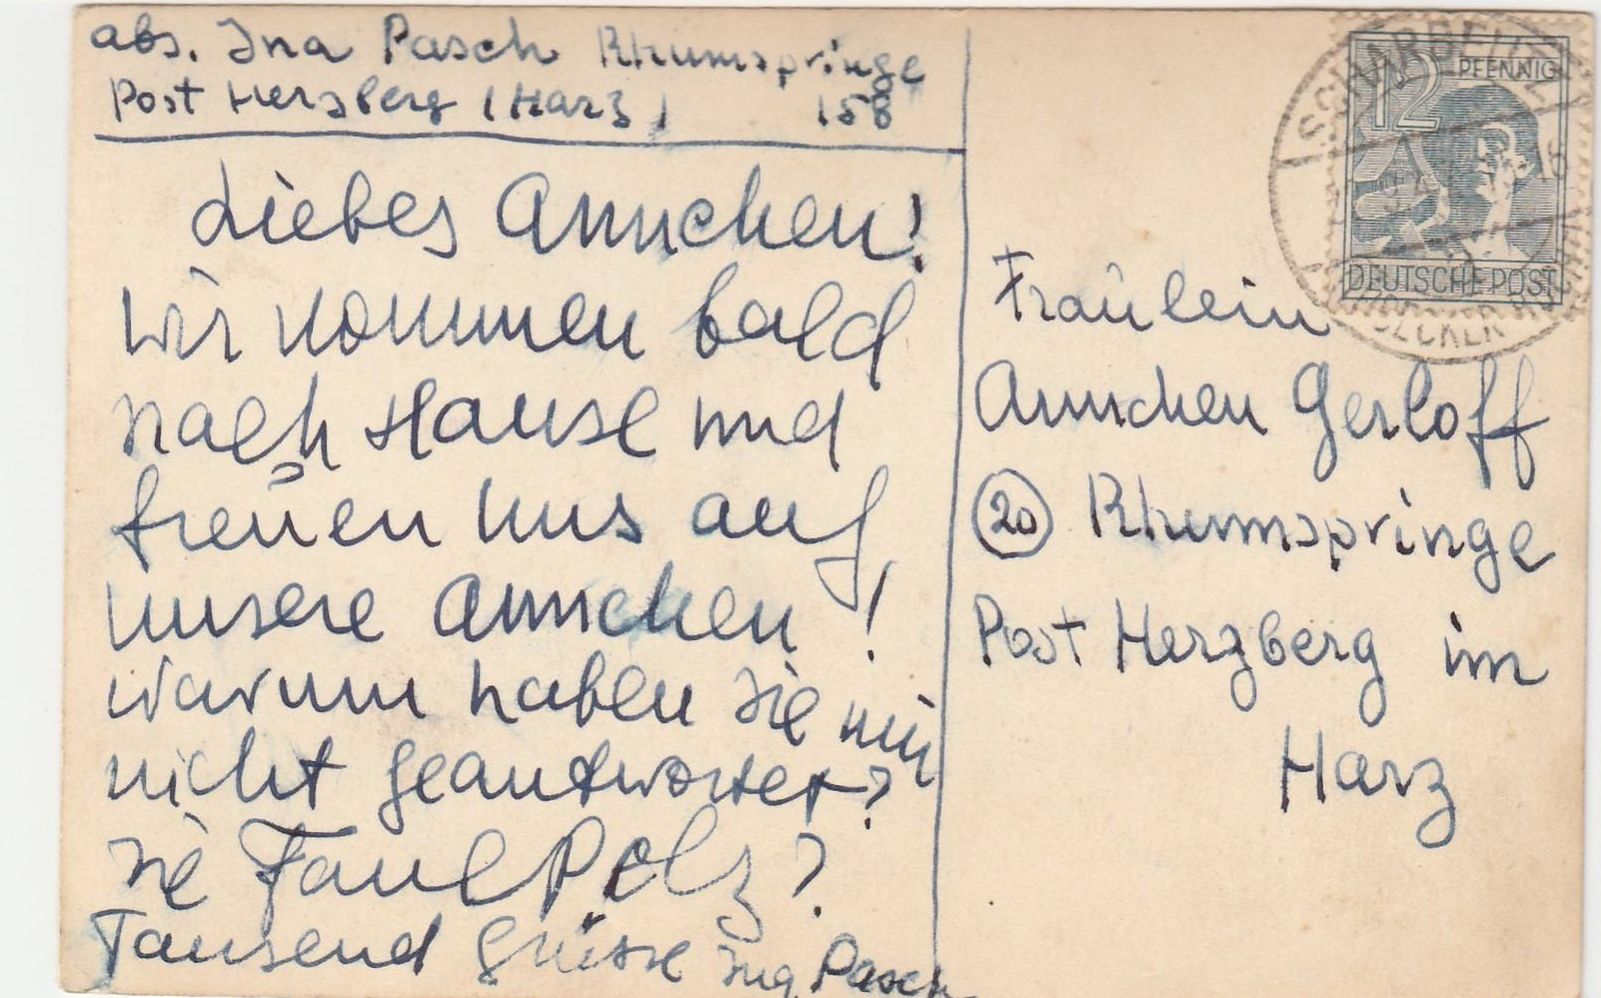 abs. Ina Pasch Rhumspringe
Post Herzberg (Harz) 158
Liebes Annchen!
Wir kommen bald
nach Hause und
freuen uns auf
unsere Annchen!
Warum haben Sie mir
nicht geantwortet?
Sie Faulpelz?
Tausend Grüsse Ina Pasch
12 PFENNIG
DEUTSCHE POST
SCHARBEUTZ
Fräulein
Annchen Gerloff
20 Rhumspringe
Post Herzberg im
Harz